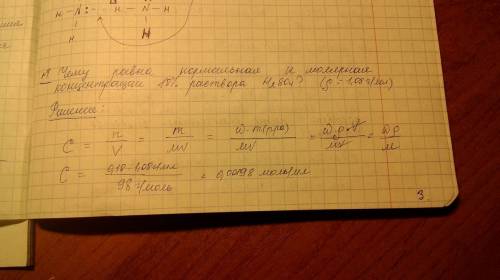 H – N : H – N – H
H H
Чему равна нормальная и молярная
концентрации 18% раствора H₂SO₄? (ρ = 1,08 г/мл)
Решение:
C = n/V = m/MV = ω·m(р-ра)/MV = ω·ρ·V/MV = ωρ/M
C = 0,18·1,08 г/мл / 98 г/моль = 0,00198 моль/мл
3